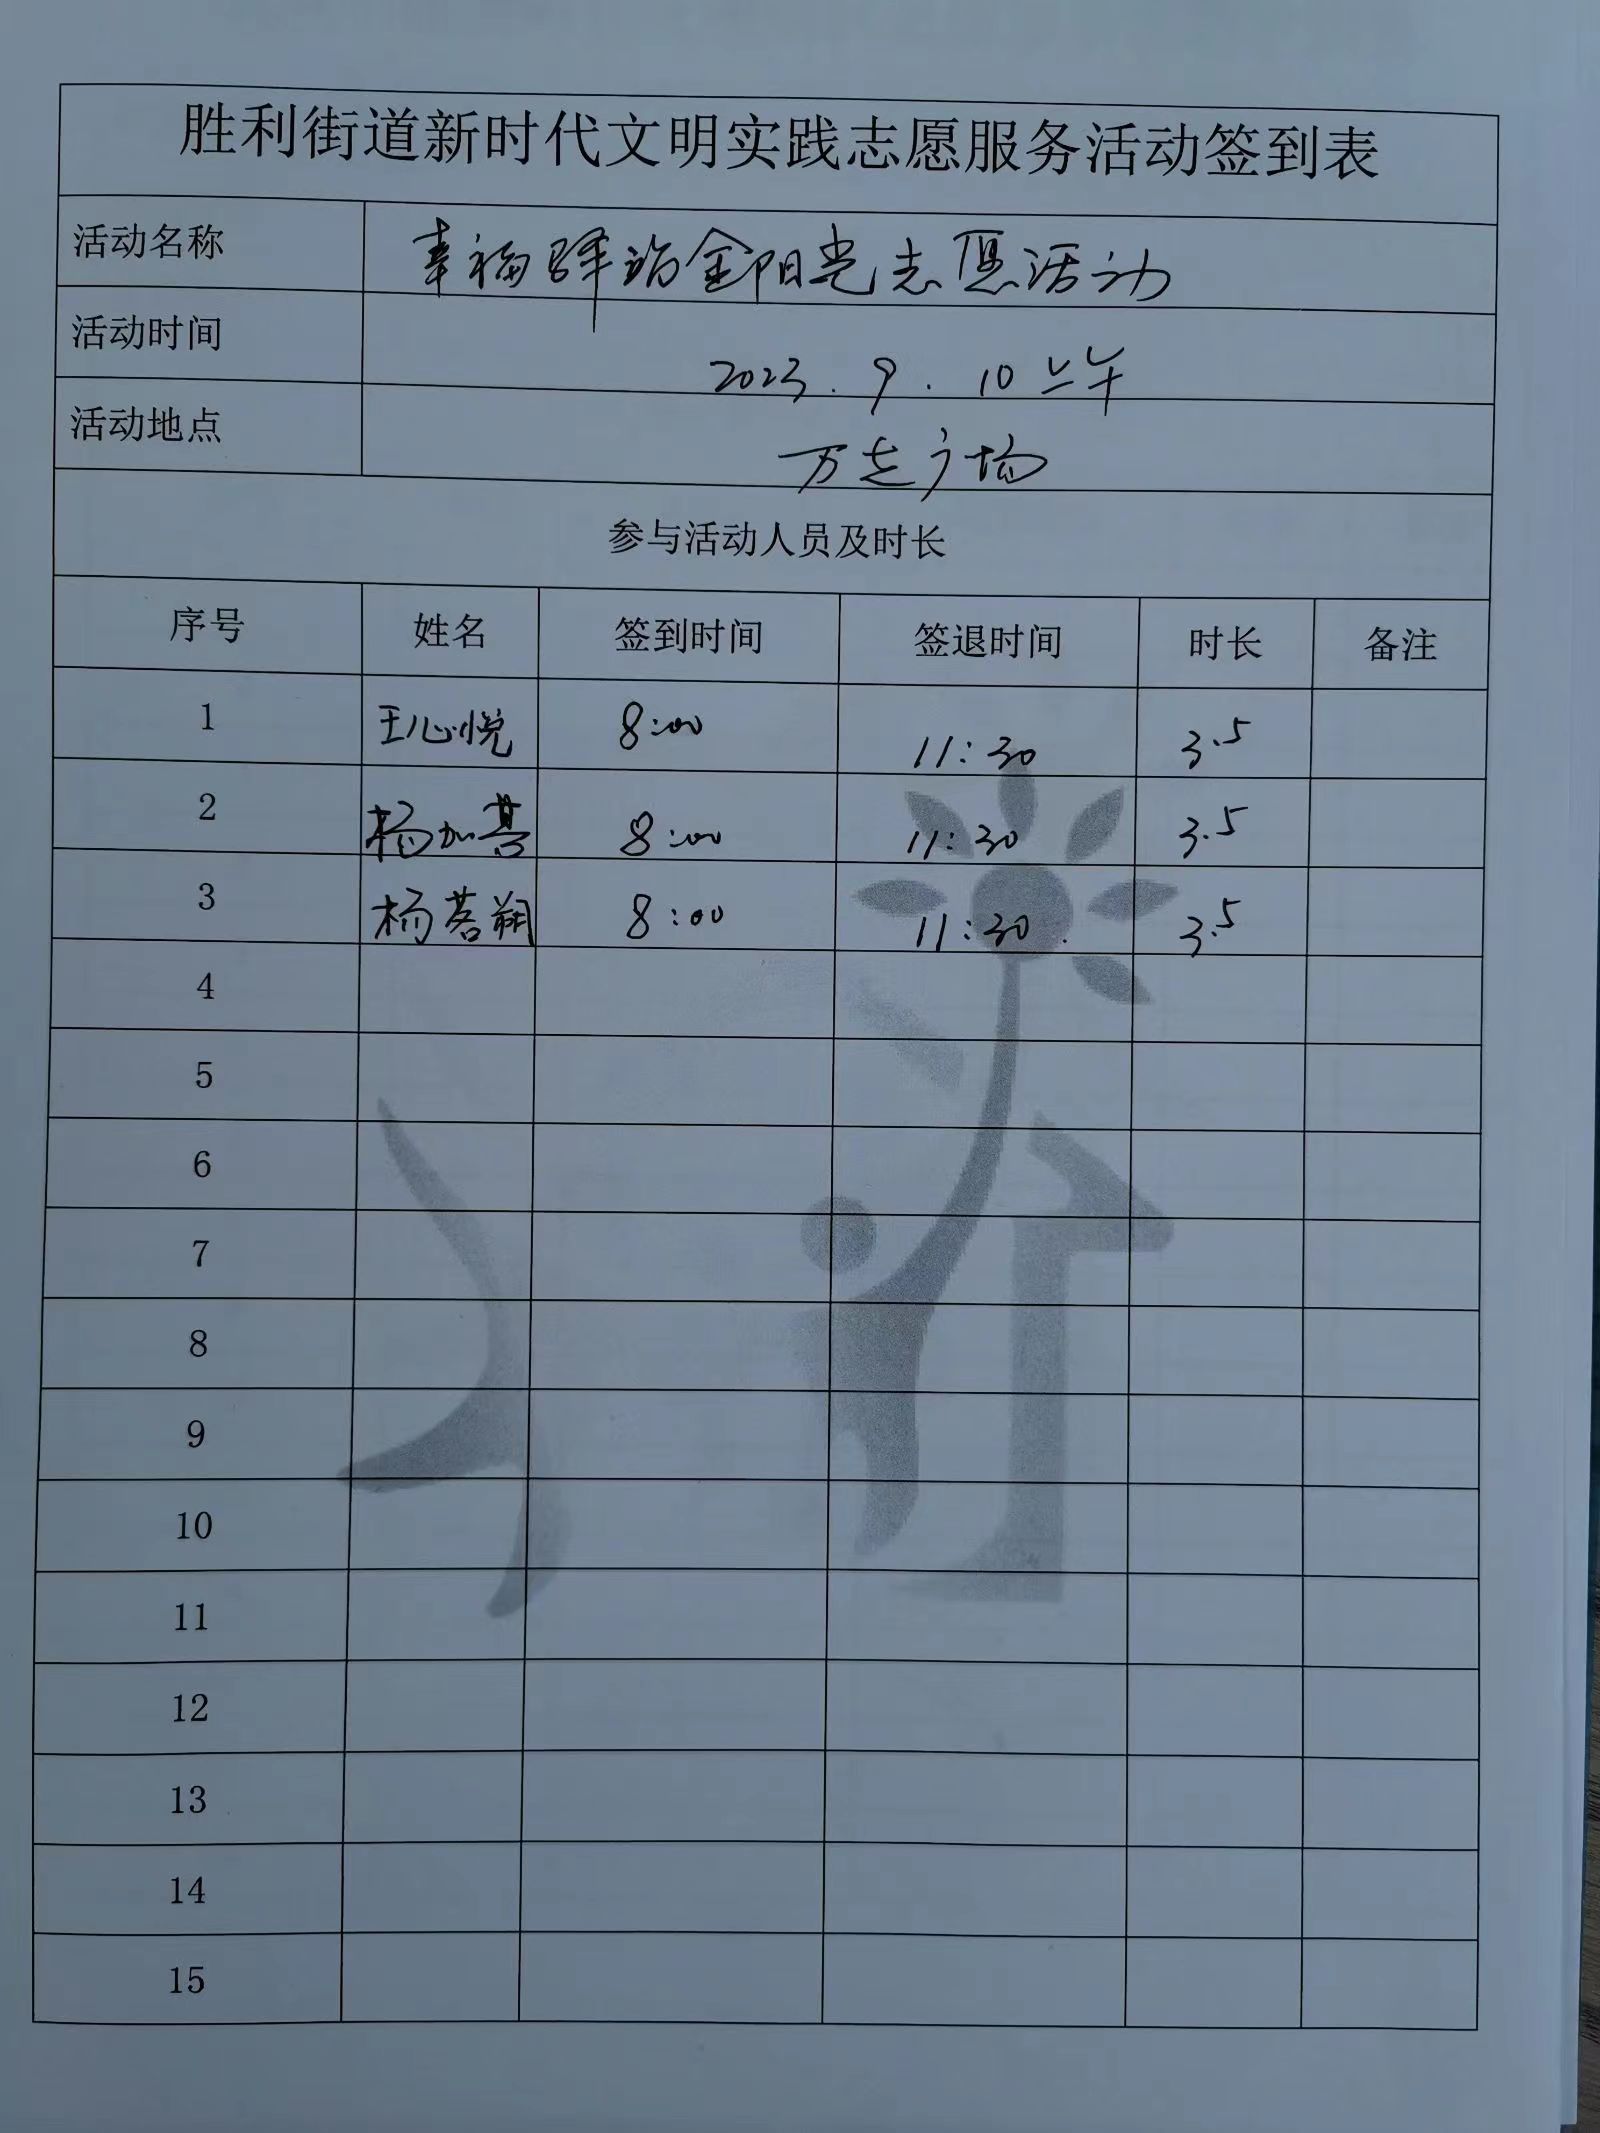 胜利街道新时代文明实践志愿服务活动签到表
活动名称 幸福驿站金阳光志愿活动
活动时间 2023.9.10上午
活动地点 万达广场
参与活动人员及时长
序号 姓名 签到时间 签退时间 时长 备注
1 王心悦 8:00 11:30 3.5
2 杨加 8:00 11:30 3.5
3 杨茗朔 8:00 11:30 3.5
4
5
6
7
8
9
10
11
12
13
14
15